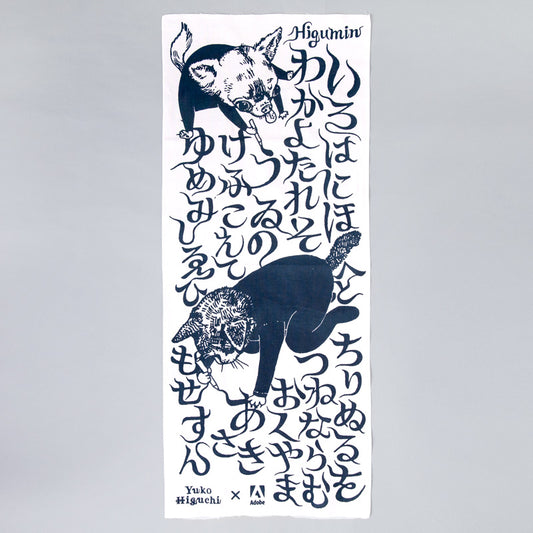 Higumin
いろはにほへと
ちりぬるを
わかよたれそ
つねならむ
うゐの
おくやま
けふこえて
あさき
ゆめみしゑひ
もせすん
Yuko
Higuchi
×
Adobe